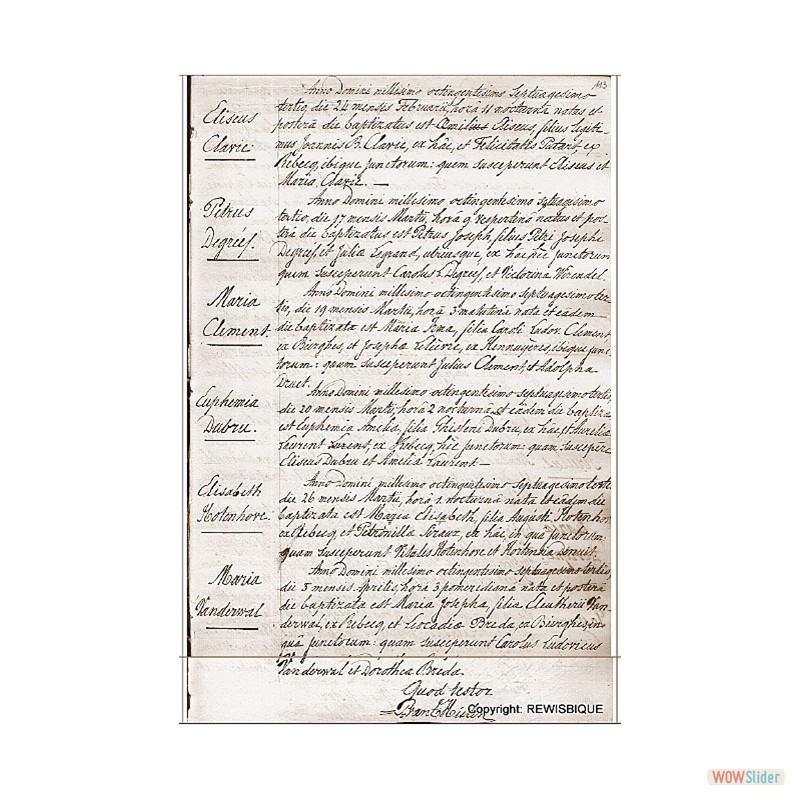 113
Eliseus
Clavie.
Anno Domini millesimo octingentesimo septuagesimo
tertio, die 24 mensis Februarii, horâ 11 nocturnâ natus et
posterâ die baptizatus est Æmilius Eliseus, filius legiti-
mus Joannis B. Clavie, ex hâc, et Felicitatis ex
Rebecq, ibique junctorum: quem susceperunt Eliseus et
Maria Clavie. —
Petrus
Degreef.
Anno Domini millesimo octingentesimo septuagesimo
tertio, die 17 mensis Martii, horâ 9 vespertinâ natus et pos-
terâ die baptizatus est Petrus Joseph, filius Petri Josephi
Degreef, et Julia Legrand, utriusque, ex hâc hic junctorum
quem susceperunt Carolus L. Degreef, et Victorina
Maria
Clement.
Anno Domini millesimo octingentesimo septuagesimo ter-
tio, die 19 mensis Martii, horâ 3 matutinâ nata et eâdem
die baptizata est Maria Irma, filia Caroli Ludov. Clement
ex Bierghes, et Josepha Lelievre, ex Hennuyeres, ibique junc-
torum: quam susceperunt Julius Clement, et Adolpha
Druet.
Euphemia
Dubru.
Anno Domini millesimo octingentesimo septuagesimo tertio,
die 20 mensis Martii, horâ 2 nocturnâ et eâdem die baptiza
est Euphemia Amelia, filia Ghisleni Dubru, ex hâc, et Aurelia
Laurent, ex Rebecq, hic junctorum: quam suscepere
Eliseus Dubru et Amelia Laurent —
Elisabeth
Hotenhove.
Anno Domini millesimo octingentesimo septuagesimo tertio
die 26 mensis Martii, horâ 1 nocturnâ nata et eâdem die
baptizata est Maria Elisabeth, filia Augusti Hotenhov
ex Rebecq, et Petronilla ex hâc, in quâ junctorum:
quam susceperunt Vitalis Hotenhove et Hortensia
Maria
Vanderwal
Anno Domini millesimo octingentesimo septuagesimo tertio,
die 5 mensis Aprilis, horâ 3 pomeridianâ nata et posterâ
die baptizata est Maria Josepha, filia Eleutherii Van-
derwal, ex Rebecq, et Leocadia Breda, ex Bierghes, in
quâ junctorum: quam susceperunt Carolus Ludovicus
Vanderwal et Dorothea Breda.
Quod testor
Copyright: REWISBIQUE
WOWSlider